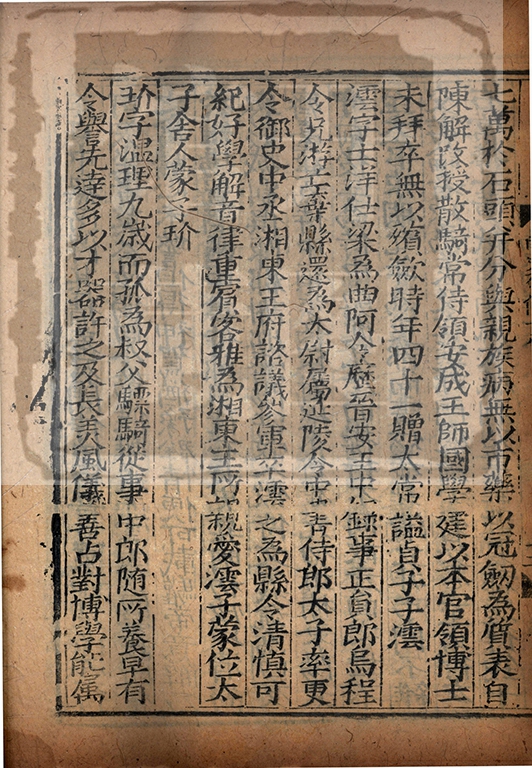 七萬於石頭并分與親族病無以市藥以冠劒為質表自
陳解改授散騎常侍領安成王師國學建以本官領博士
未拜卒無以殯斂時年四十一贈太常謚貞子子澐
澐字士洋仕梁為曲阿令歷晉安王中 錄事正員郎烏程
令兄游亡棄縣還為太尉屬延陵令中 書侍郎太子率更
令御史中丞湘東王府諮議參軍卒澐之為縣令清慎可
紀好學解音律重賓客雅為湘東王所 親愛澐子蒙位太
子舍人蒙子玠
玠字溫理九歲而孤為叔父驃騎從事中郎隨所養早有
令譽先達多以才器許之及長美風儀善占對博學能屬